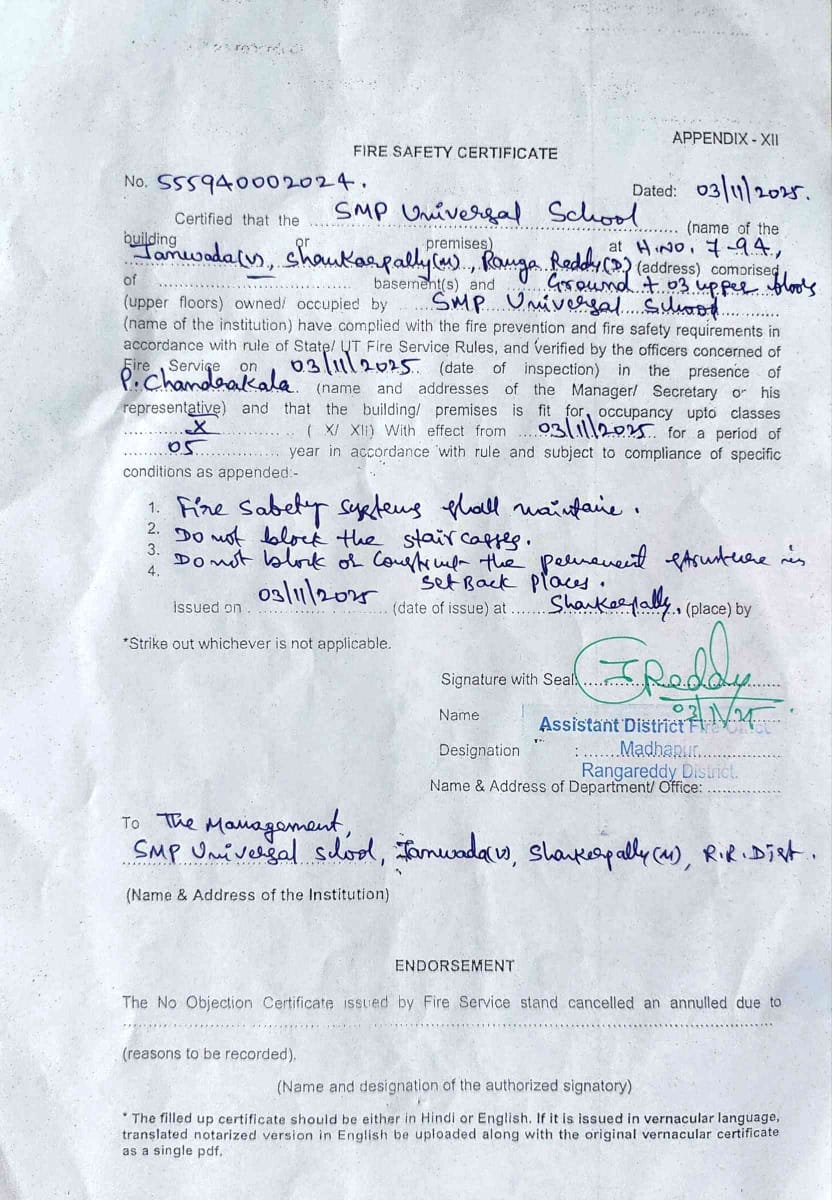 APPENDIX - XII
FIRE SAFETY CERTIFICATE
No. 555940002024.
Dated: 03/11/2025.
Certified that the SMP Universal School (name of the
building or premises) at H.NO. 7-94,
Janwada(V), Shankarpally(M), Ranga Reddy(D) (address) comprised
of basement(s) and Ground + 03 upper floors
(upper floors) owned/ occupied by SMP Universal School
(name of the institution) have complied with the fire prevention and fire safety requirements in
accordance with rule of State/ UT Fire Service Rules, and verified by the officers concerned of
Fire Service on 03/11/2025. (date of inspection) in the presence of
P. Chandrakala (name and addresses of the Manager/ Secretary or his
representative) and that the building/ premises is fit for occupancy upto classes
X ( X/ XIi) With effect from 03/11/2025 for a period of
05 year in accordance with rule and subject to compliance of specific
conditions as appended:-
1. Fire Safety Systems shall maintain.
2. Do not block the stair cases.
3. Do not block or Construct the permanent structure in
4. Set Back places.
issued on 03/11/2025 (date of issue) at Shankarpally, (place) by
*Strike out whichever is not applicable.
Signature with Seal Reddy
03/11/25
Name
Assistant District Fire
Designation : Madhapur.
Rangareddy District.
Name & Address of Department/ Office:
To The Management,
SMP Universal School, Janwada(V), Shankerpally(M), R.R. Dist.
(Name & Address of the Institution)
ENDORSEMENT
The No Objection Certificate issued by Fire Service stand cancelled an annulled due to
(reasons to be recorded).
(Name and designation of the authorized signatory)
* The filled up certificate should be either in Hindi or English. If it is issued in vernacular language,
translated notarized version in English be uploaded along with the original vernacular certificate
as a single pdf.